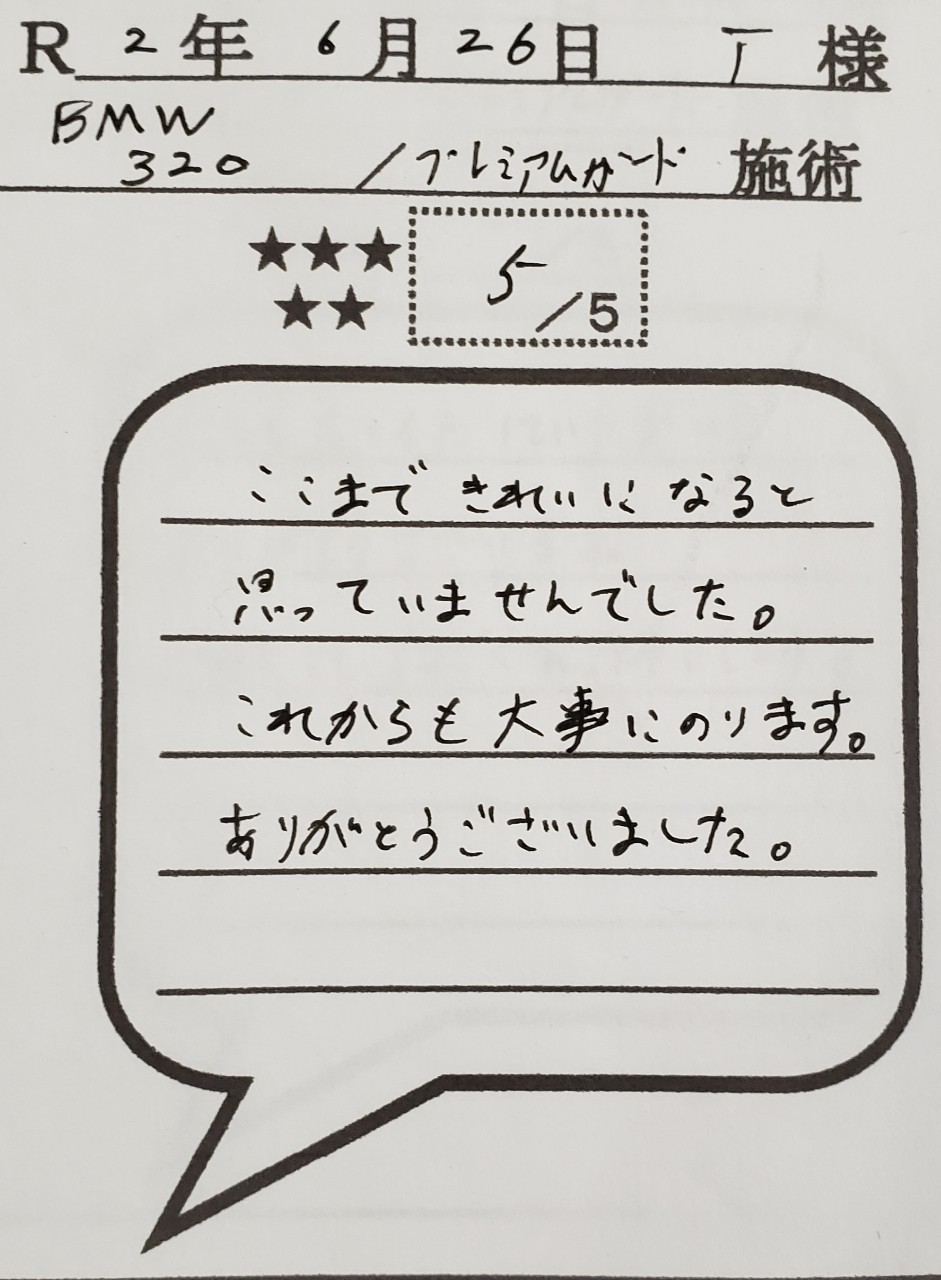 R2年 6月26日 T様
BMW
320 /プレミアムガード 施術
★★★
★★
5/5
ここまできれいになると
思っていませんでした。
これからも大事にのります。
ありがとうございました。